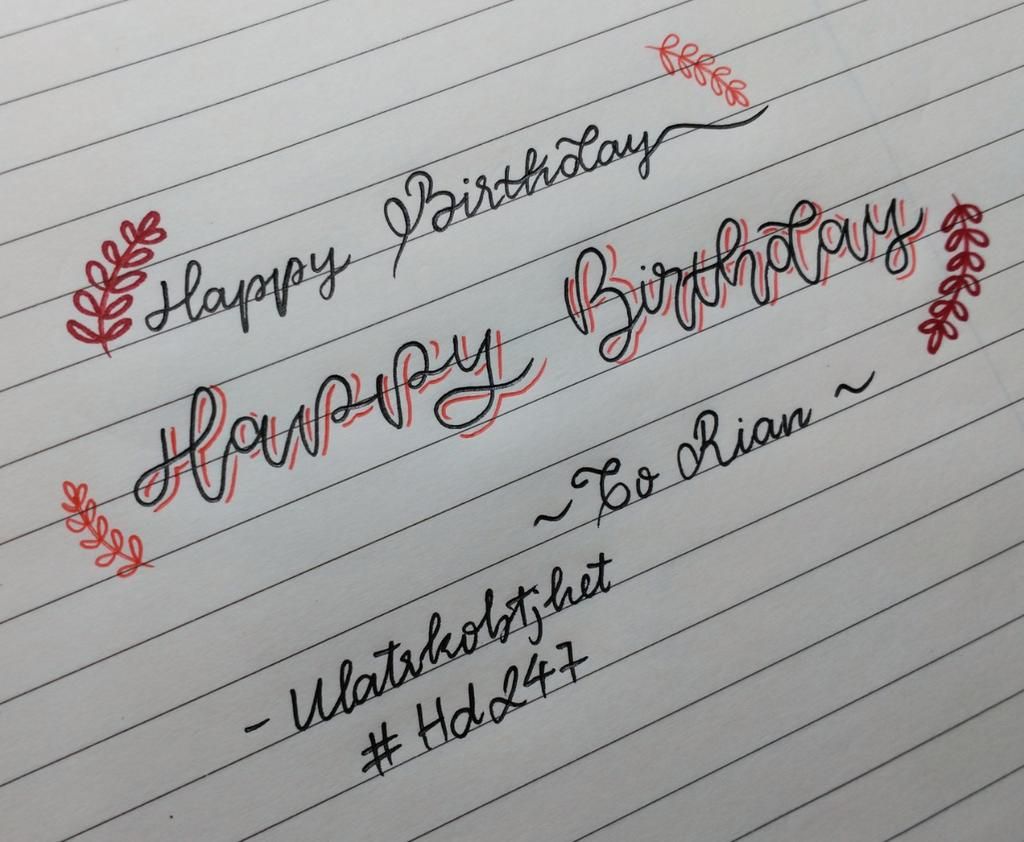 Happy Birthday
Happy Birthday
~ To Rian ~
#Hd247